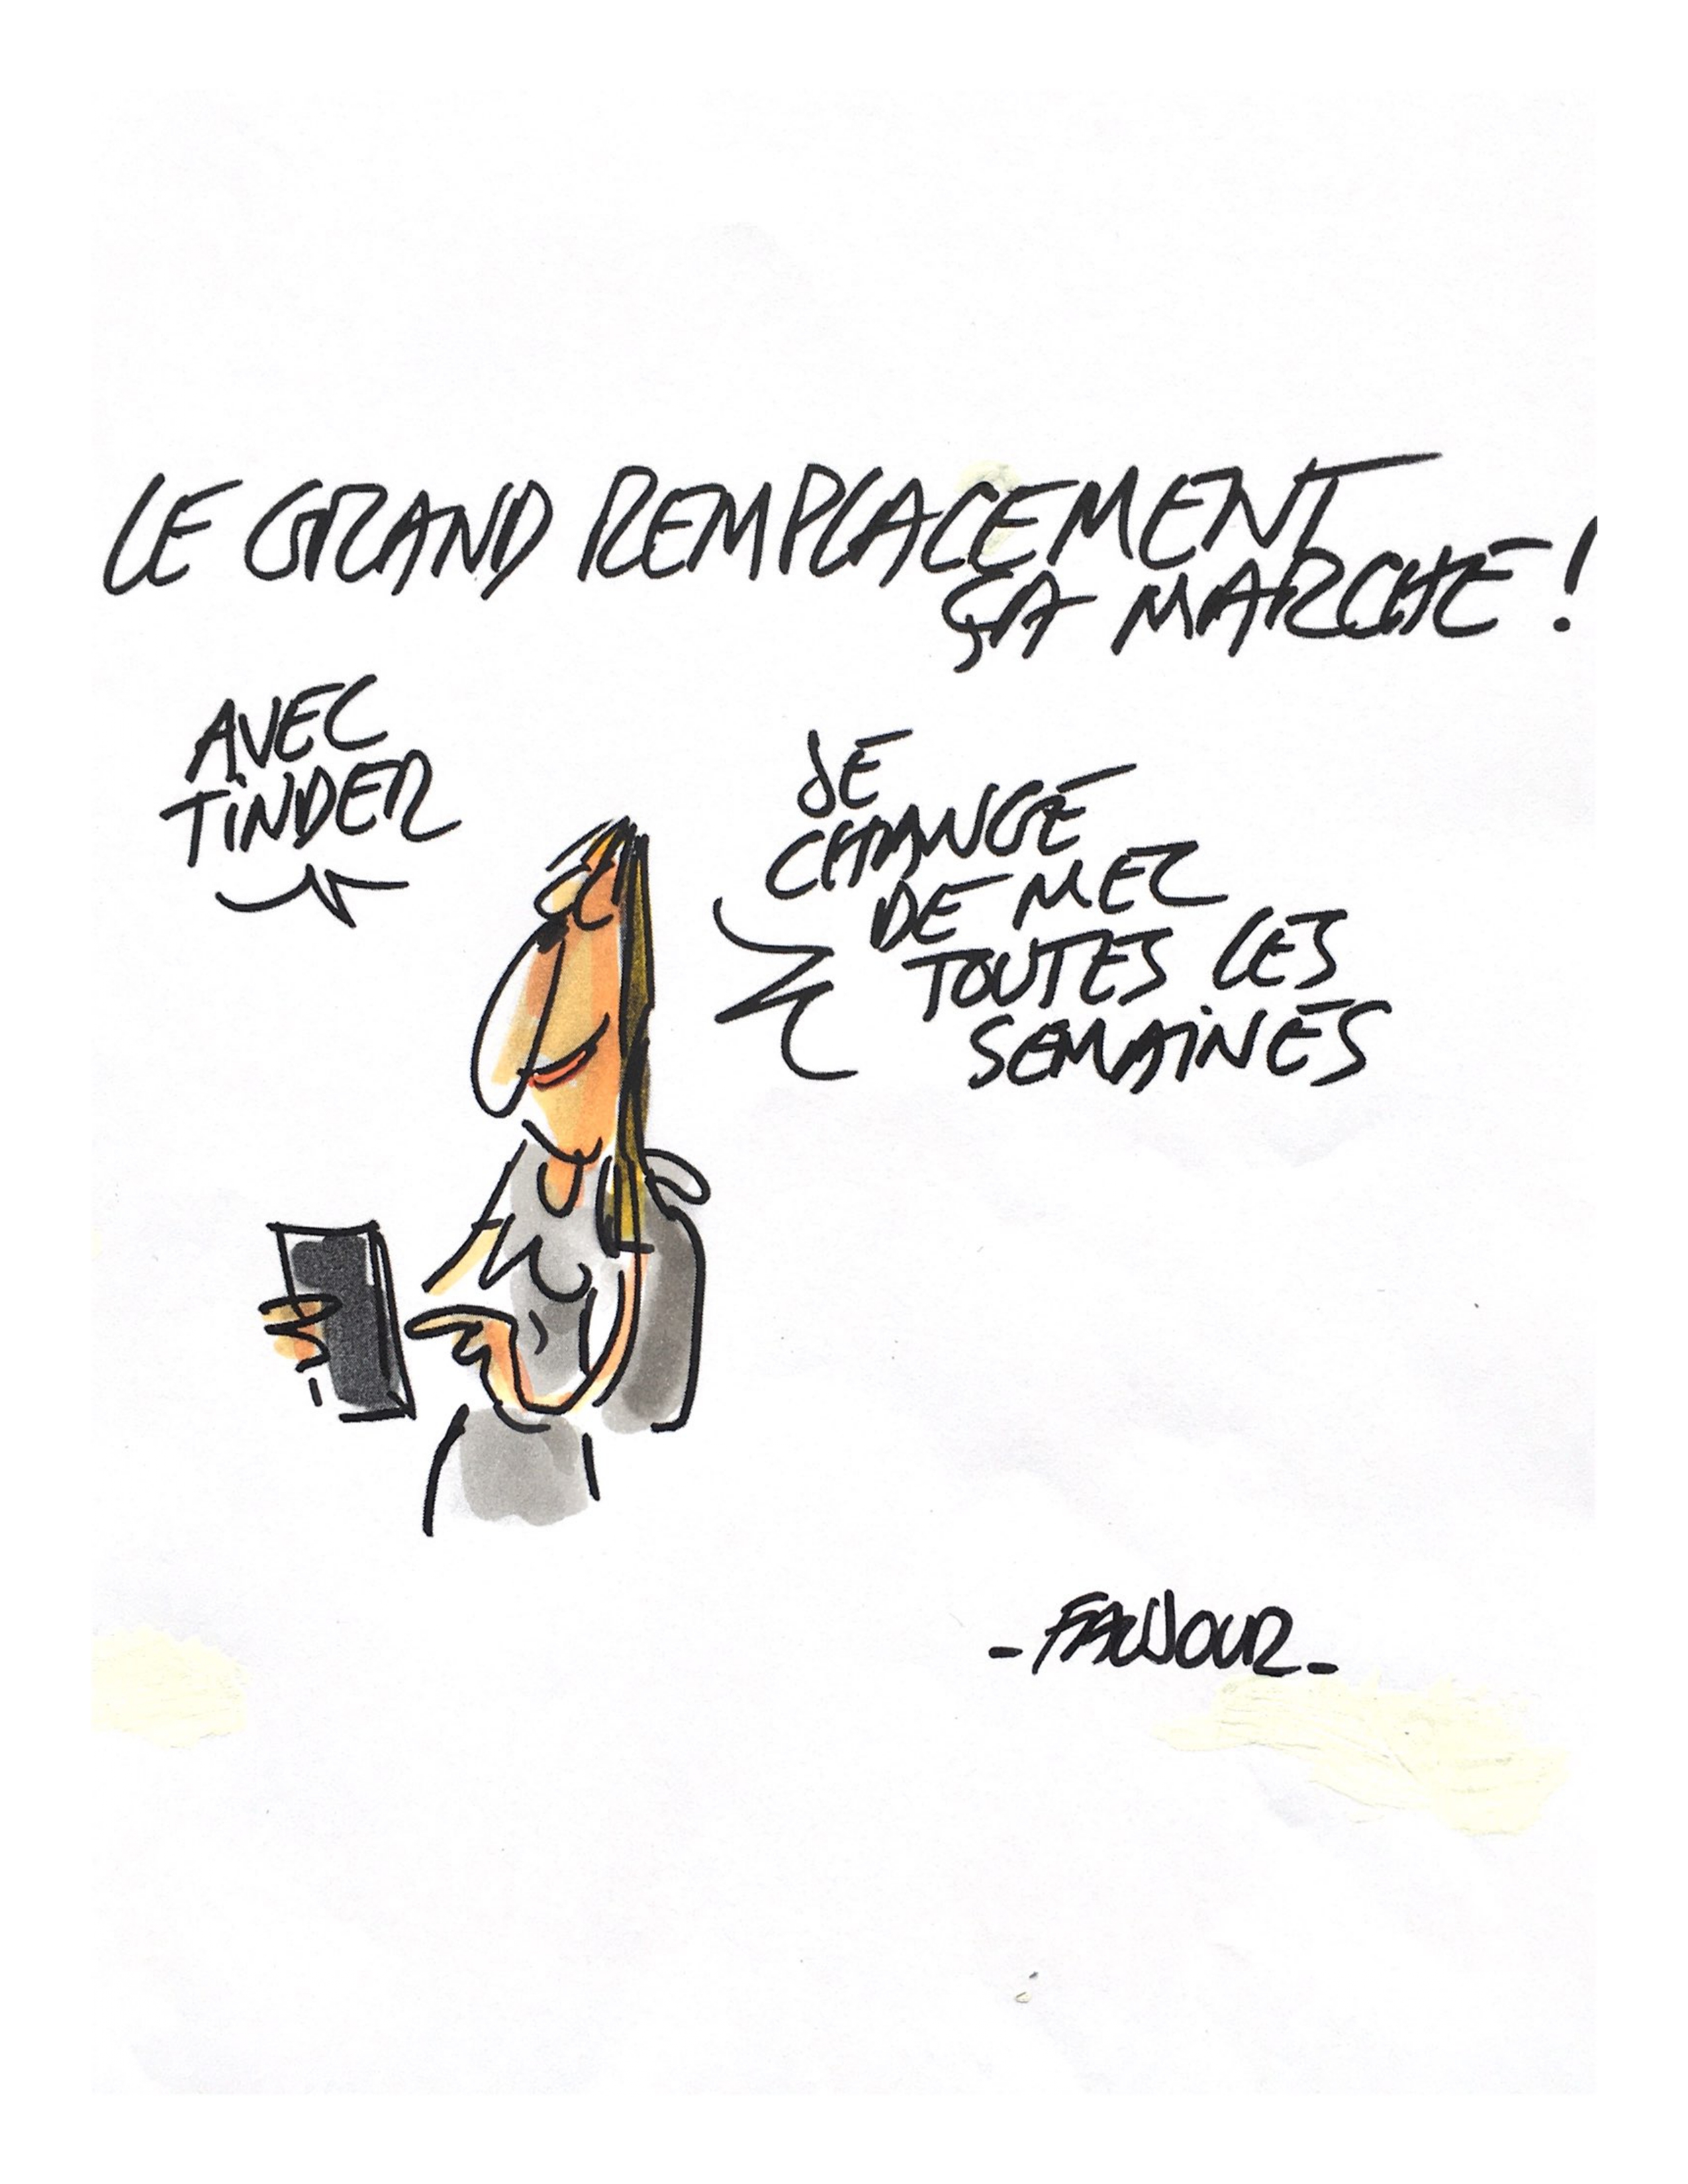 LE GRAND REMPLACEMENT
ÇA MARCHE !
AVEC
TiNDER
JE
CHANGE
DE MEC
TOUTES LES
SEMAiNES
- FAUJOUR -